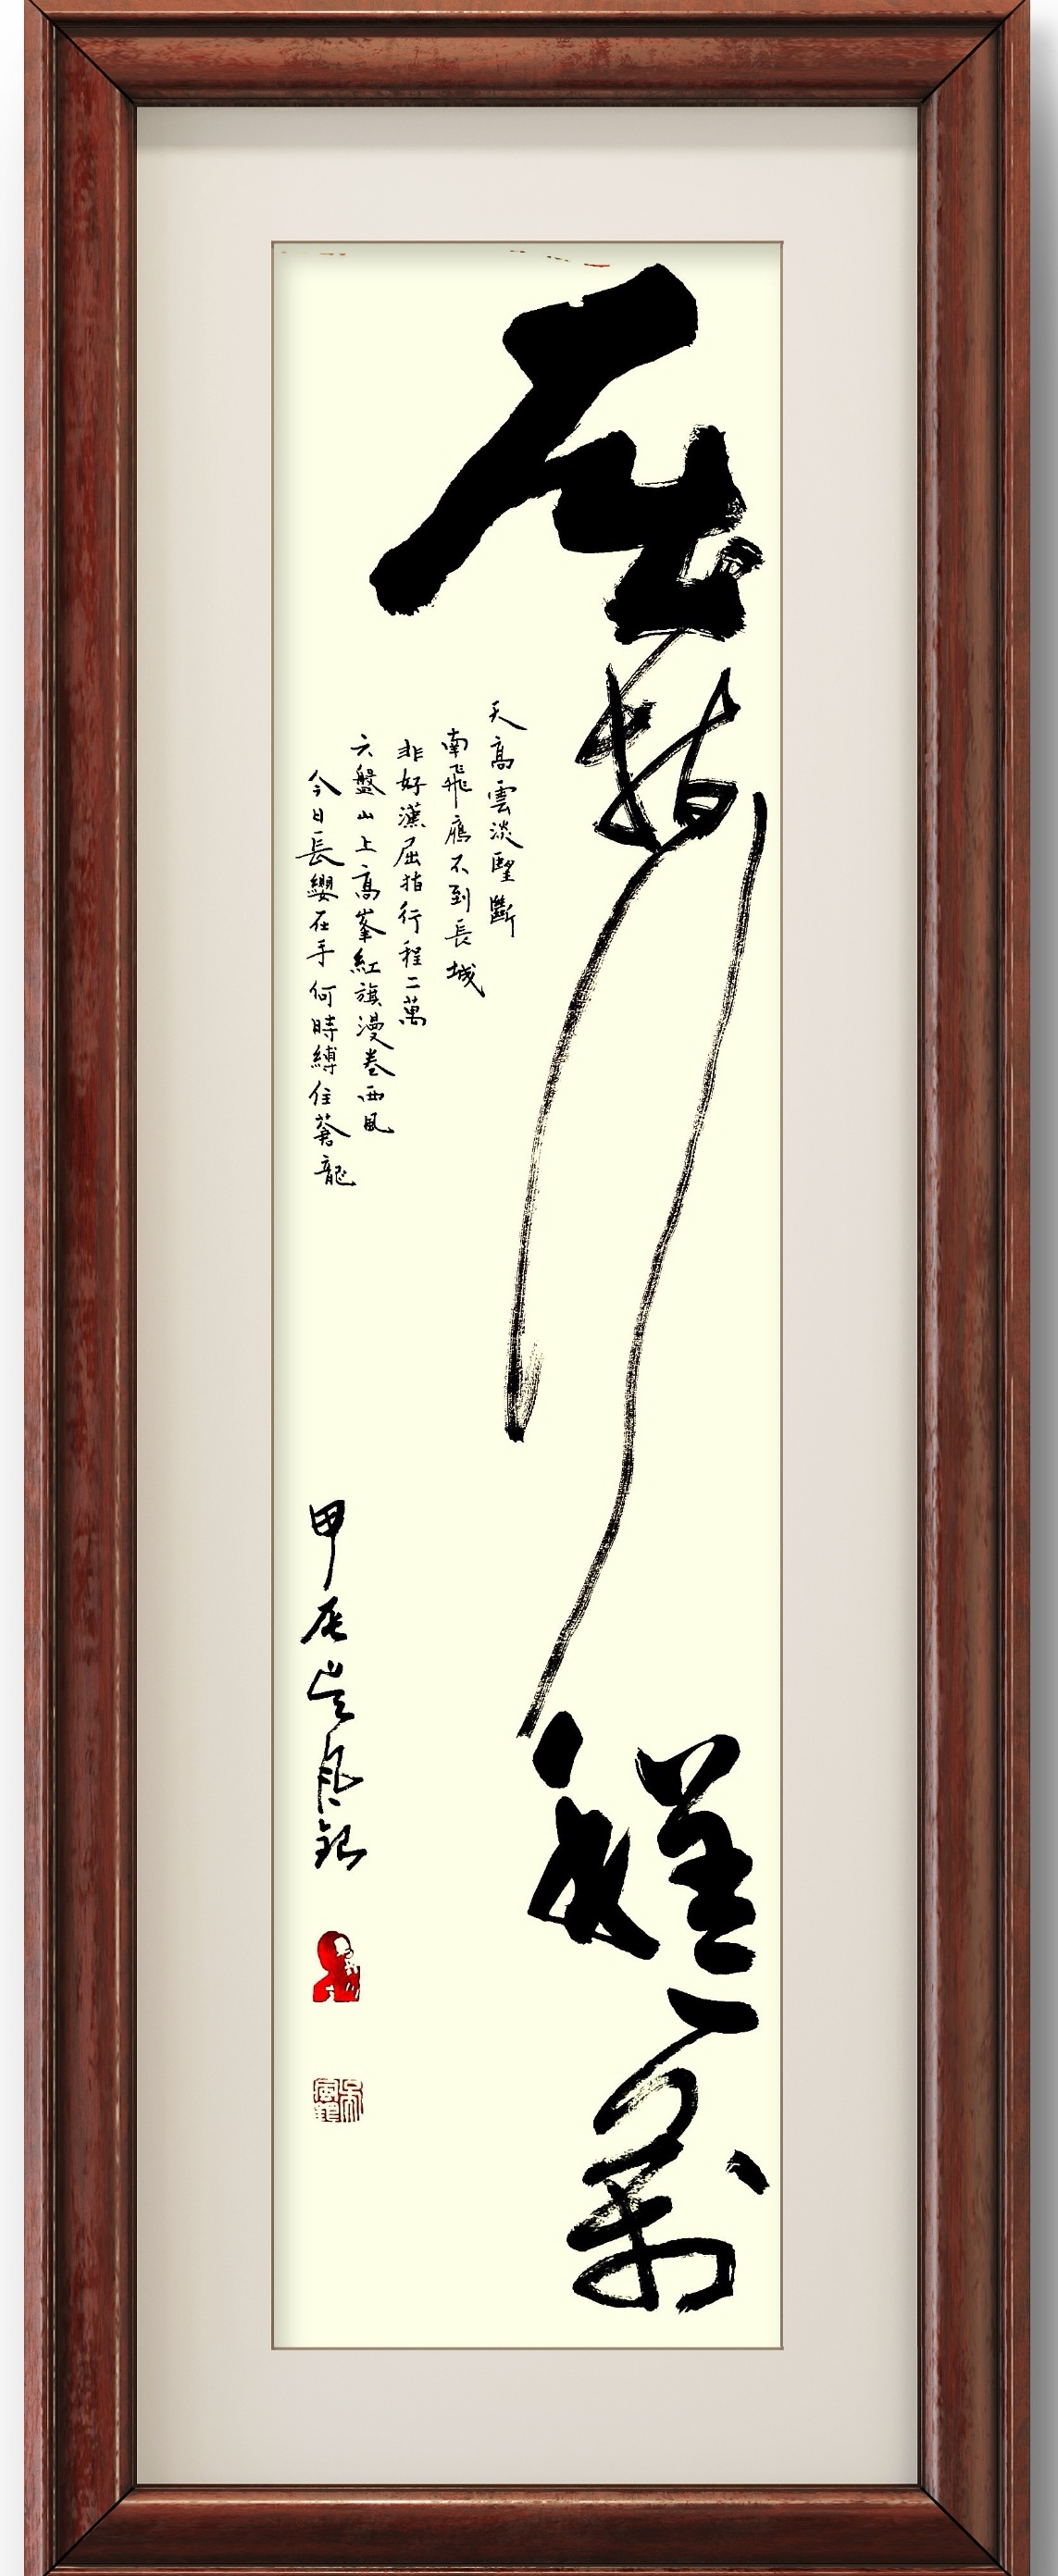 屈指行程二萬
天高雲淡朢斷
南飛鴈不到長城
非好漢屈指行程二萬
六盤山上高峯紅旗漫卷西風
今日長纓在手何時縛住蒼龍
甲辰